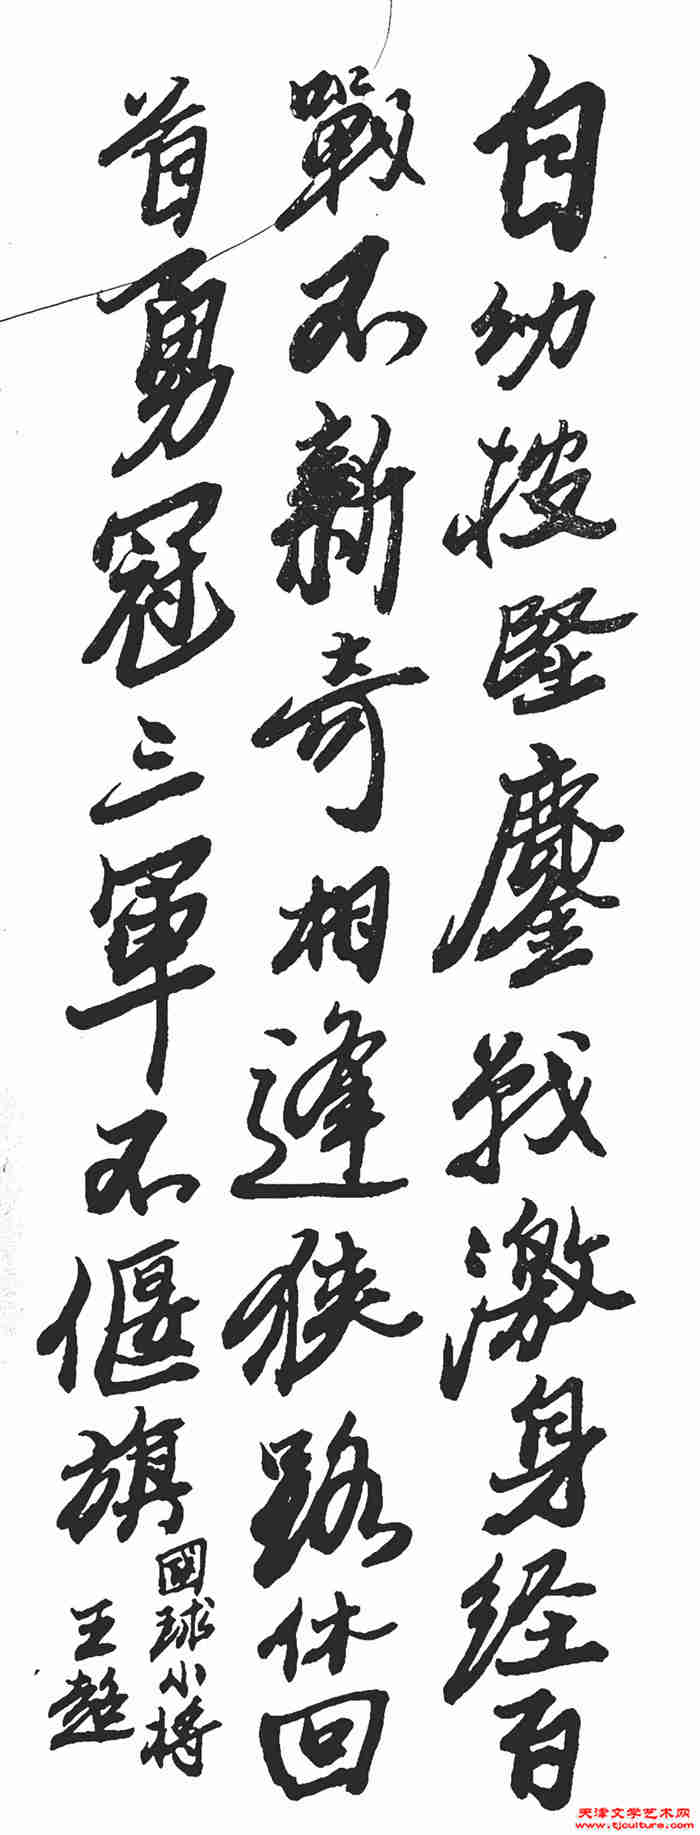 自幼披坚鏖战激身经百
戰不新奇相逢狭路休回
首勇冠三軍不偃旗
國球小将
王超
天津文学艺术网
www.tjculture.com